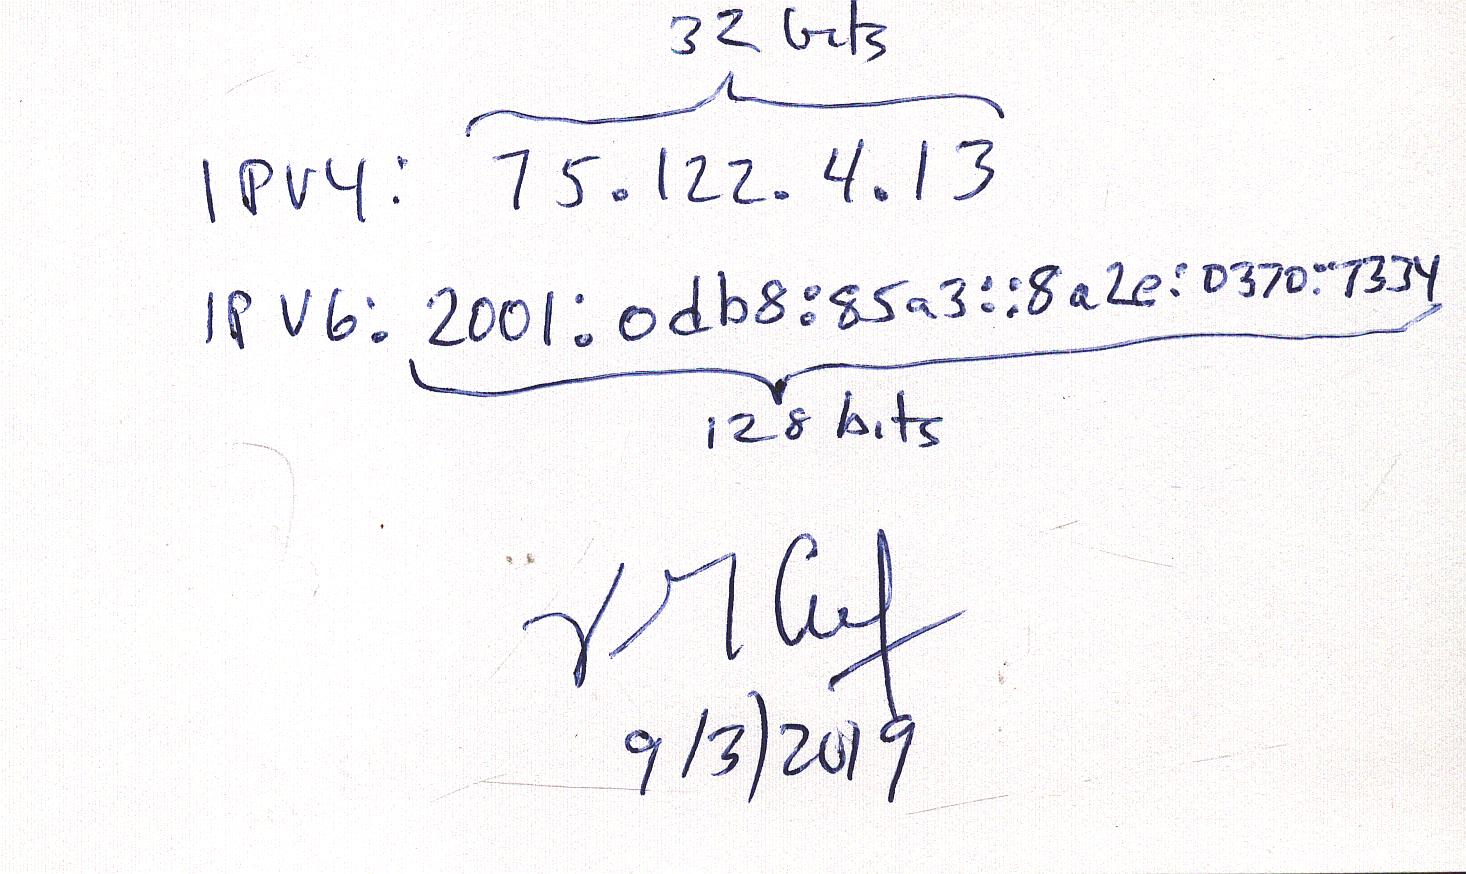 32 bits
IPV4: 75.122.4.13
IPV6: 2001:0db8:85a3::8a2e:0370:7334
128 bits
V M Cerf
9/3/2019